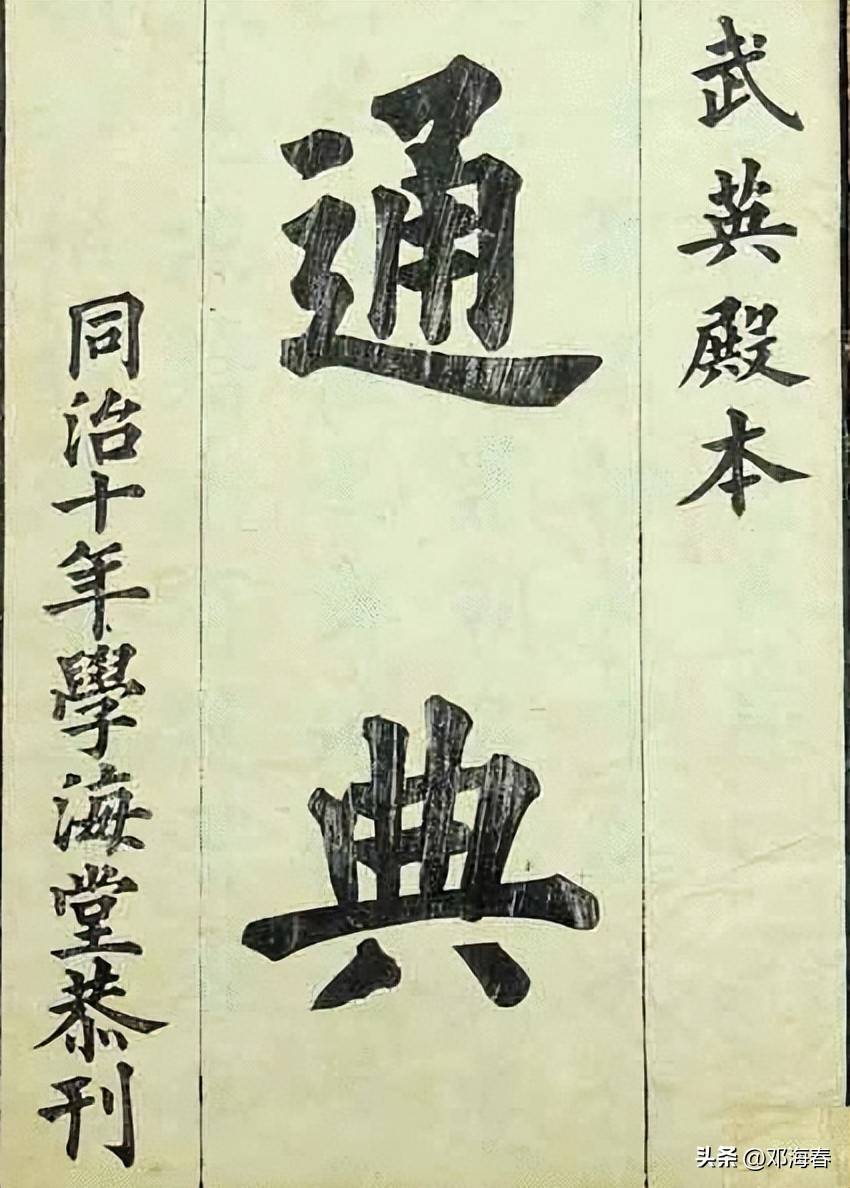 武英殿本
通典
同治十年學海堂恭刊
头条 @邓海春